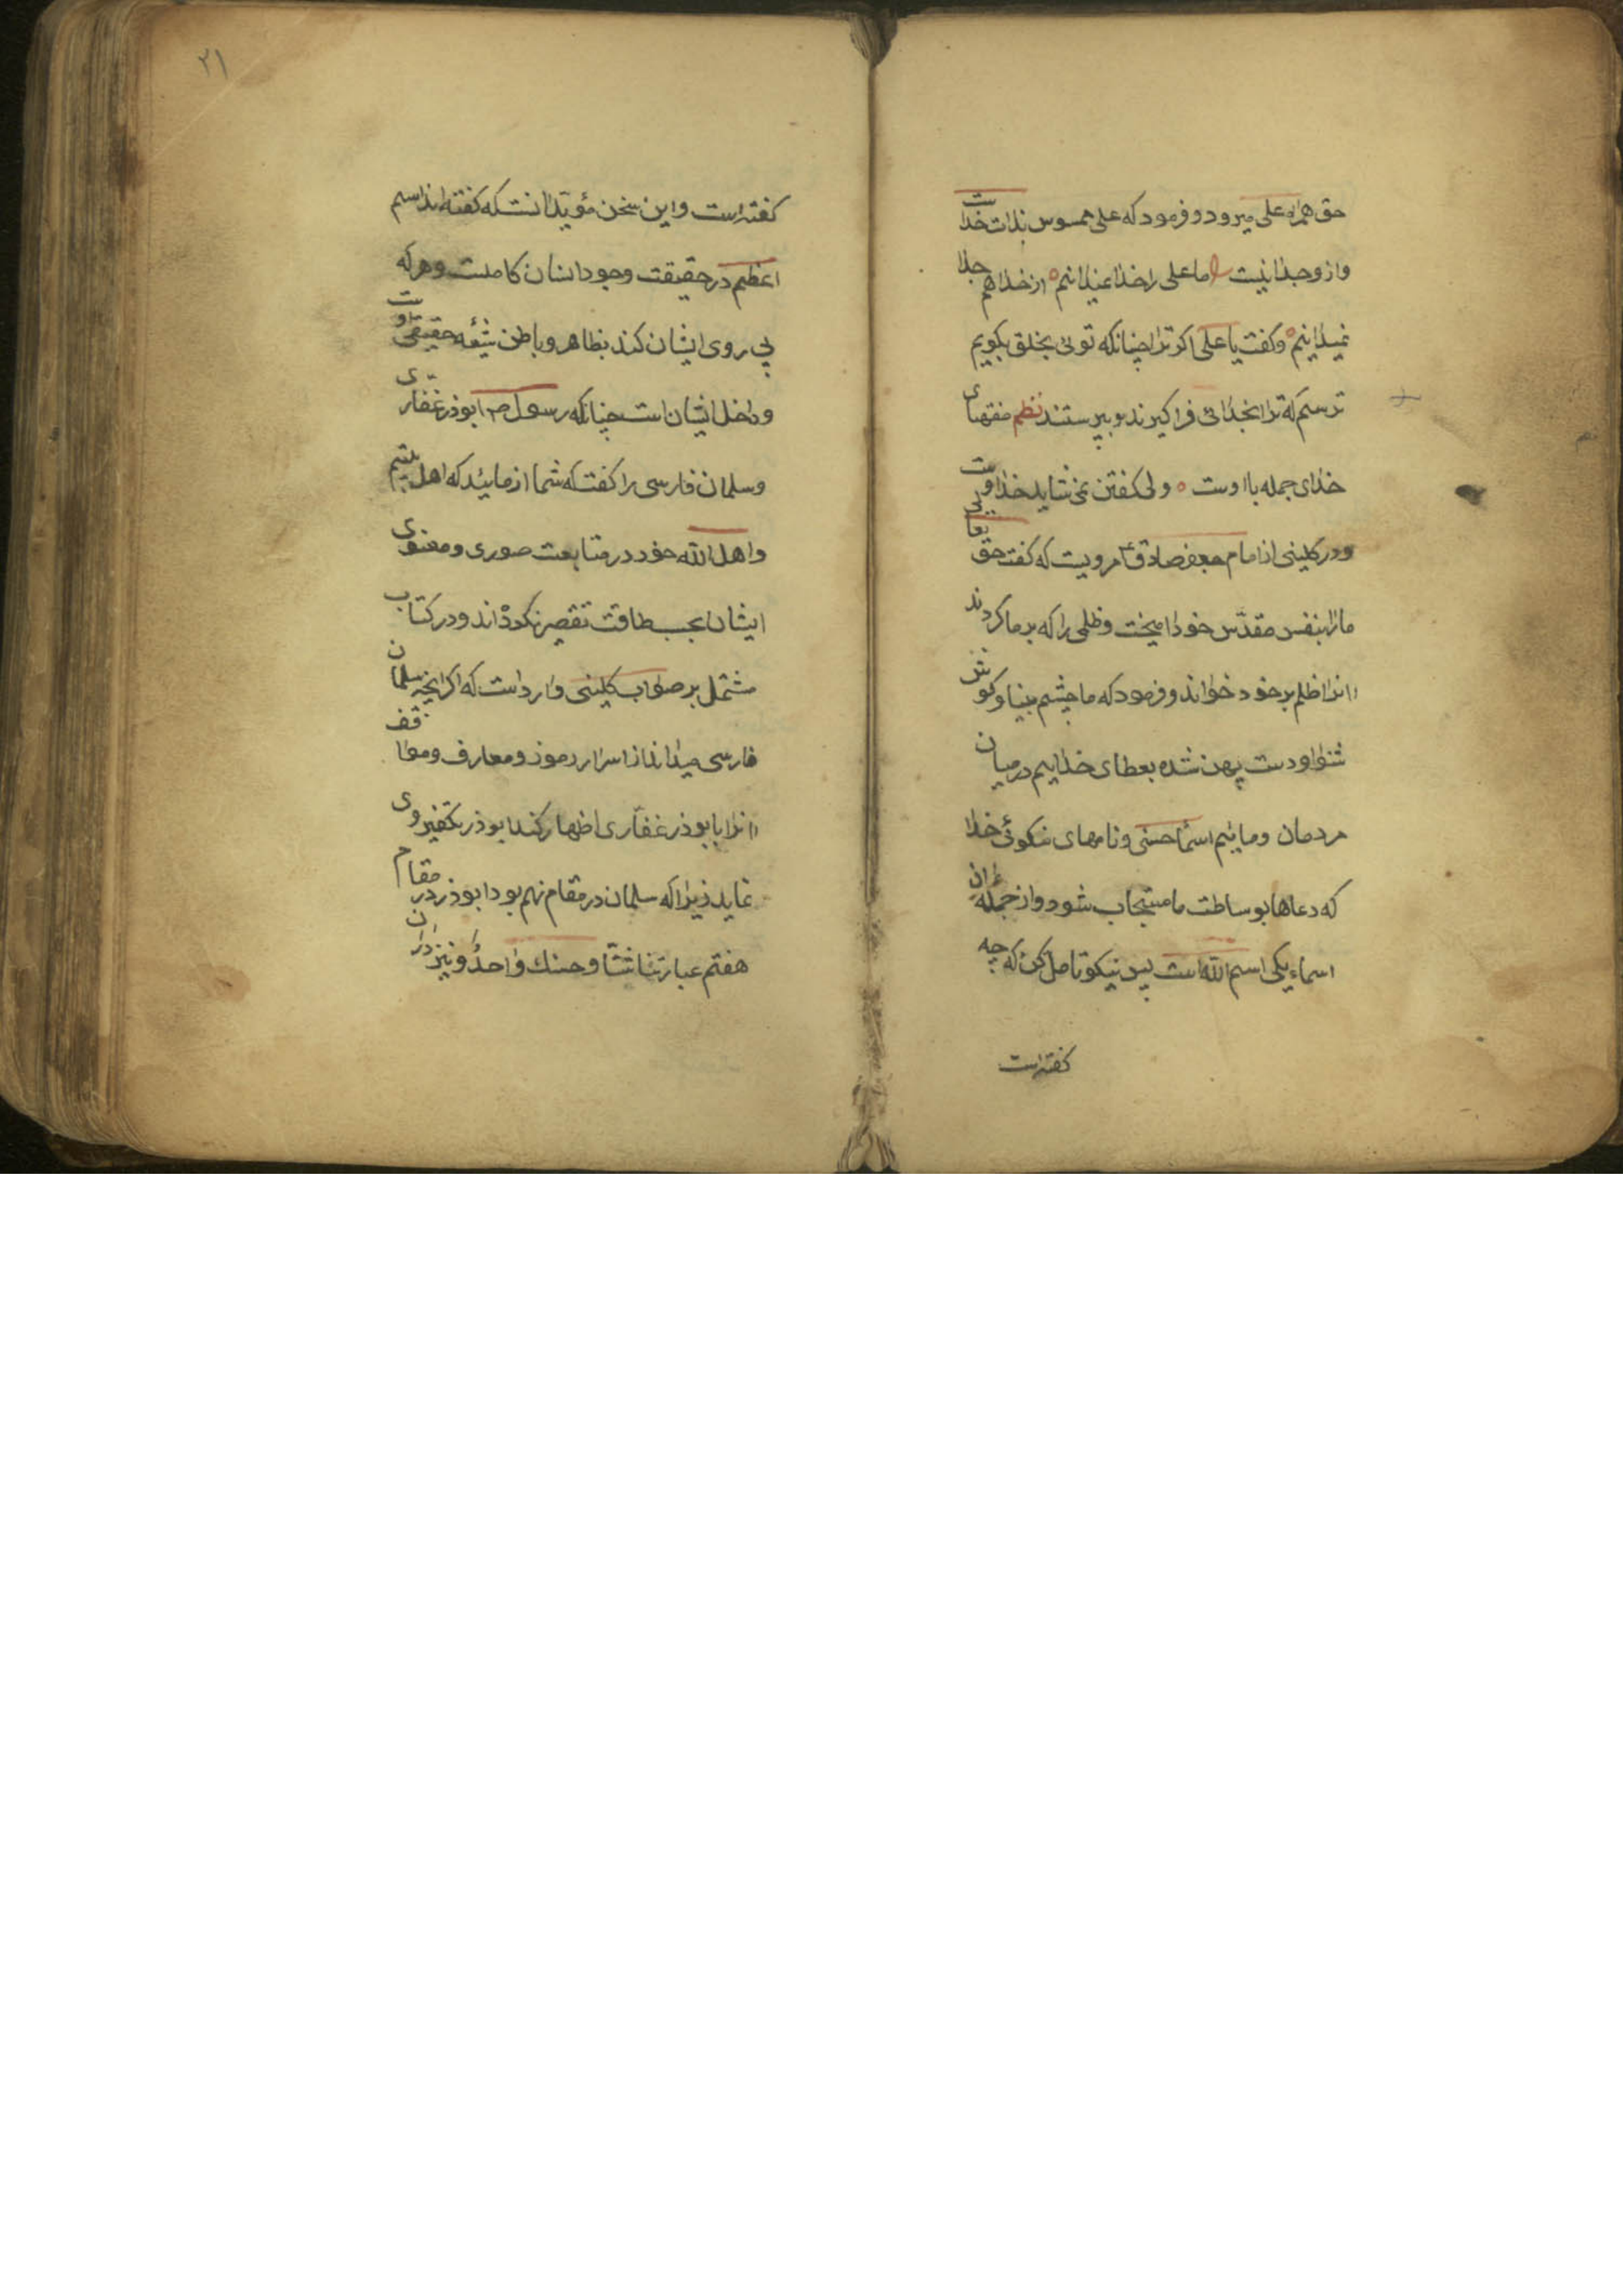 حق همراه علی میرود و فرمود که علی ممسوس بذات خداست
و ازو جدا نیست اما علی را خدا نمیدانم ه از خدا هم جدا
نمیدانیم ه و گفت یا علی اگر ترا چنانکه توئی بخلق بگویم
ترسم که ترا بخدائی فرا گیرند و بپرستند نظم منتهای
خدای جمله با اوست ه ولی گفتن نمی شاید خداوست
و در کلینی از امام جعفر صادق ع مرویست که گفت حق تعالی
ما را بنفس مقدس خود امیخت و ظلمی را که بر ما کردند
انرا ظلم بر خود خواند و فرمود که ما چشم بینا و گوش
شنوا و دست پهن شده بعطای خداییم در میان
مردمان و مائیم اسماء حسنی و نامهای نیکوئی خدا
که دعاها بوساطت ما مستجاب شود و از جمله
اسماء یکی اسم الله است پس نیکو تامل کن که چه
گفته است
۲۱
گفته است و این سخن مؤید انست که گفته اند اسم
اعظم در حقیقت وجود انسان کاملست و هر که
پی روی ایشان کند بظاهر و باطن شیعه حقیقی اوست
و داخل ایشان است چنانکه رسول ص ابوذر غفاری
و سلمان فارسی را گفت که شما از مائید که اهل بیتیم
و اهل الله خود در متابعت صوری و معنوی
ایشان بحسب طاقت تقصیر نکرده اند و در کتاب
مشتمل بر صواب کلینی وارد است که اگر انچه سلمان
فارسی میداند از اسرار رموز و معارف و مواقف
انرا با بوذر غفاری اظهار کند ابوذر تکفیر وی
نماید زیرا که سلمان در مقام نهم بود ابوذر در مقام
هفتم عباراتنا شتا و حسنك واحد و نیز در ان